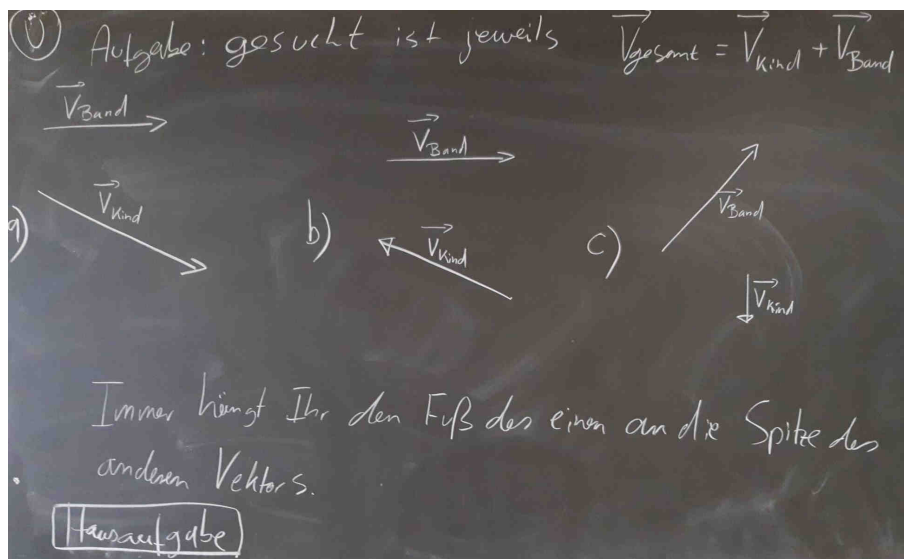 Ü Aufgabe: gesucht ist jeweils V⃗gesamt = V⃗Kind + V⃗Band
V⃗Band
V⃗Kind
a)
V⃗Band
b)
V⃗Kind
c)
V⃗Band
V⃗Kind
Immer hängt Ihr den Fuß des einen an die Spitze des
anderen Vektors.
Hausaufgabe